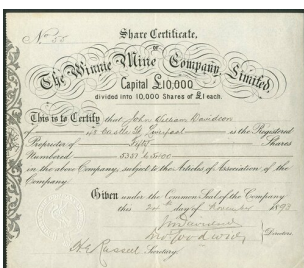 No 55
Share Certificate,
OF
The Winnie Mine Company, Limited.
Capital £10,000
divided into 10,000 Shares of £1 each.
This is to Certify that John William Davidson
of 43 Castle St Liverpool is the Registered
Proprietor of Fifty Shares
Numbered
in the above Company, subject to the Articles of Association of the
Company.
Given under the Common Seal of the Company
this day of 1893
Directors.
H G Russell Secretary